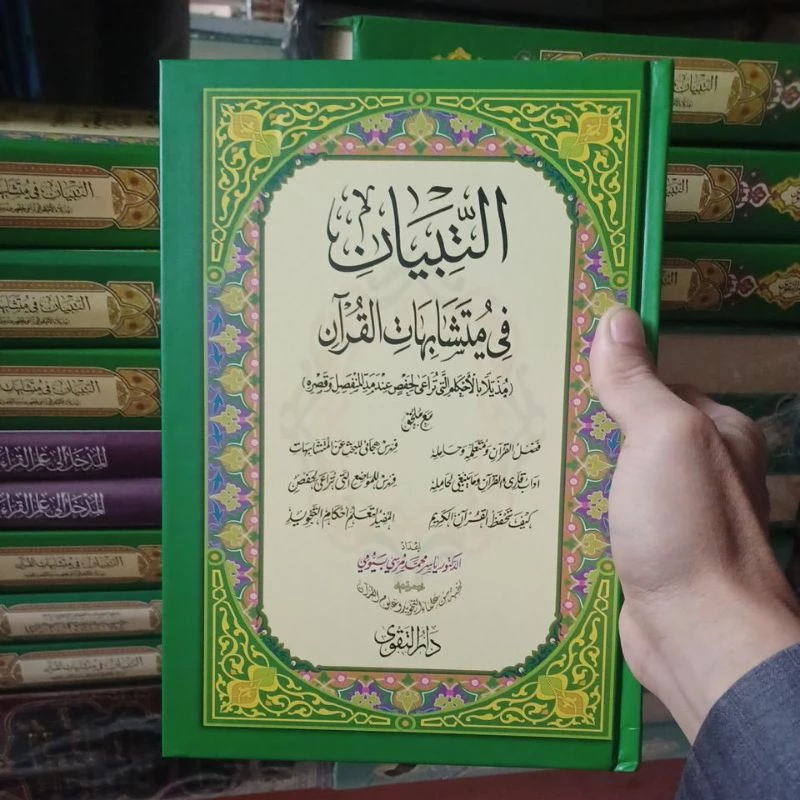 التِّبْيَان
فِي مُتَشَابِهَاتِ القُرْآن
(مُذَيَّلًا بِالأَحْكَامِ الَّتِي تُرَاعَى لِحَفْصٍ عِنْدَ مَدِّ المُنْفَصِل وَقَصْرِه)
مع ملحق
فضل القرآن ومتعلمه وحامله
فهرس هجائي للبحث عن المتشابهات
آداب قارئ القرآن وما ينبغي لحامله
فهرس للمواضع التي تراعى لحفص
كيف تحفظ القرآن الكريم
المفيد لتعلم أحكام التجويد
إعداد
الدكتور ياسر محمد مرسي بيومي
دار التقوى
التبيان في متشابهات القرآن
المدخل إلى علم القراءات
المدخل إلى علم القراءات
التبيان في متشابهات القرآن
التبيان في متشابهات القرآن